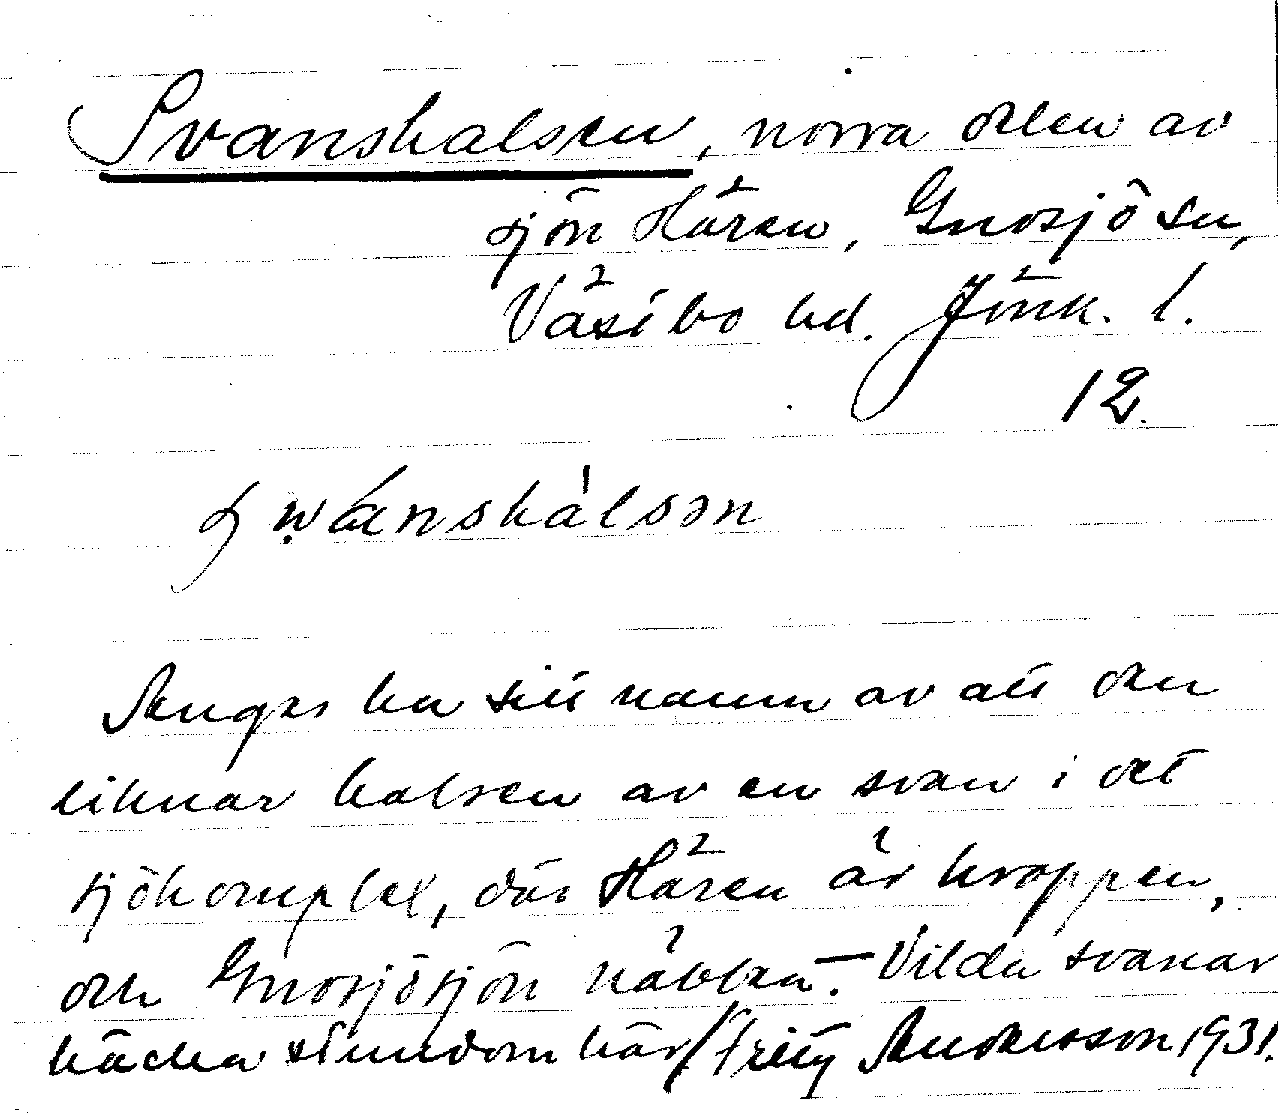 Svanshalsen, norra delen av
sjön Hären, Gnosjö sn,
Västbo hd. Jönk. l.
12.
swánshàlsən
Anges ha sitt namn av att den
liknar halsen av en svan i det
sjökomplex, där Hären är kroppen,
och Gnosjösjön näbben. – Vilda svanar
häcka stundom här / Fritz Andersson 1931.